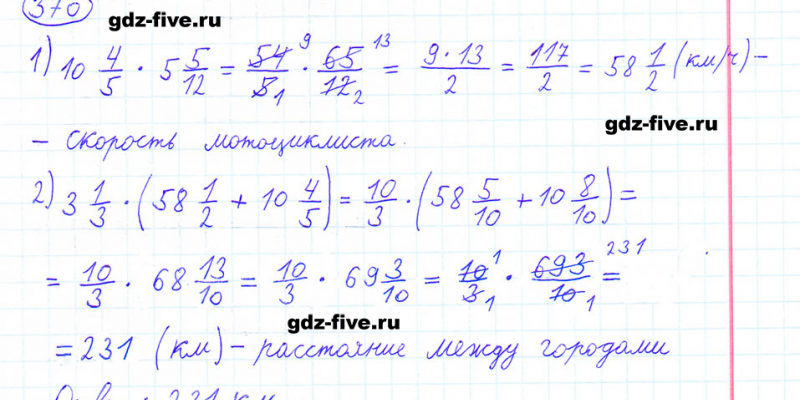 370
gdz-five.ru
1) 10 4/5 · 5 5/12 = 54/5 9 1 · 65/12 13 2 = 9·13/2 = 117/2 = 58 1/2 (км/ч) –
gdz-five.ru
– скорость мотоциклиста.
2) 3 1/3 · (58 1/2 + 10 4/5) = 10/3 · (58 5/10 + 10 8/10) =
= 10/3 · 68 13/10 = 10/3 · 69 3/10 = 10/3 1 1 · 693/10 231 1 =
gdz-five.ru
= 231 (км) – расстояние между городами
231 км